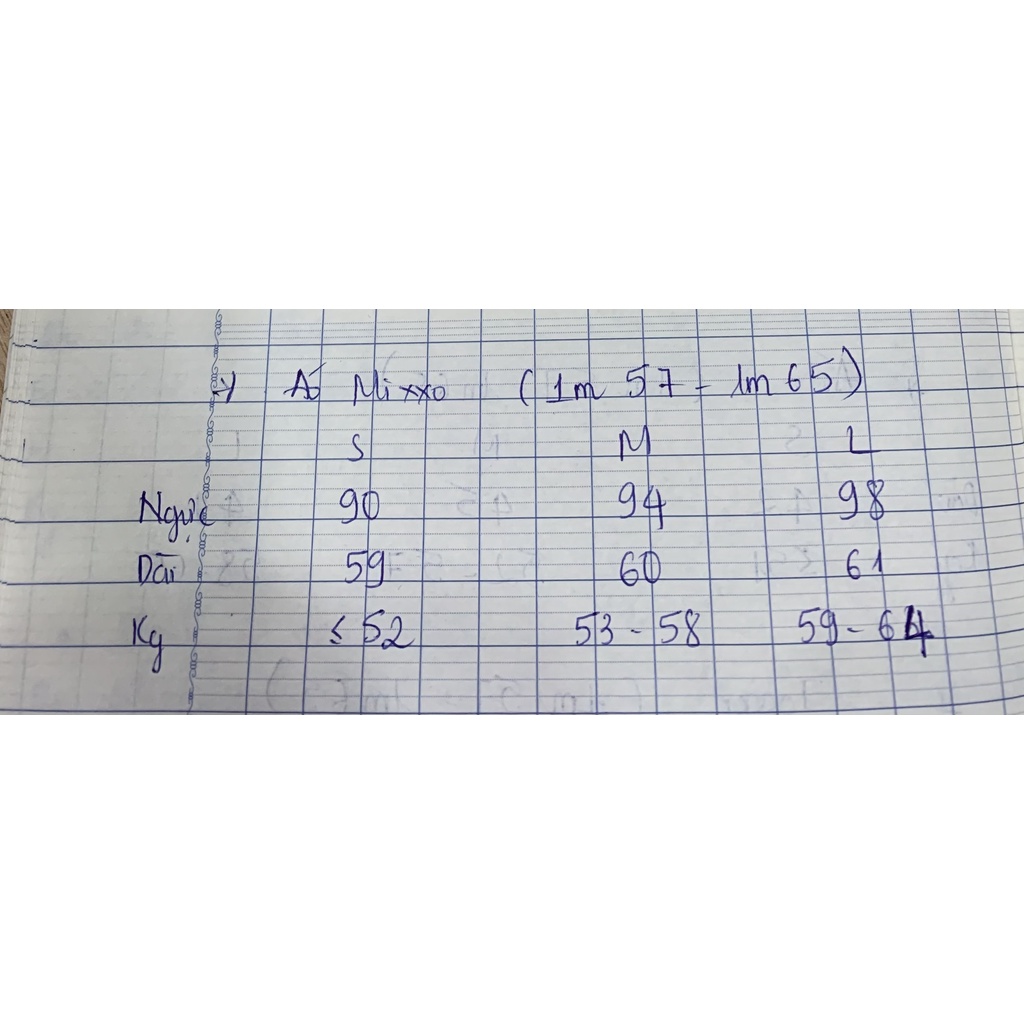 *) Áo Mixxo (1m 57 - 1m 65)
S M L
Ngực 90 94 98
Dài 59 60 61
Kg ≤ 52 53 - 58 59 - 64